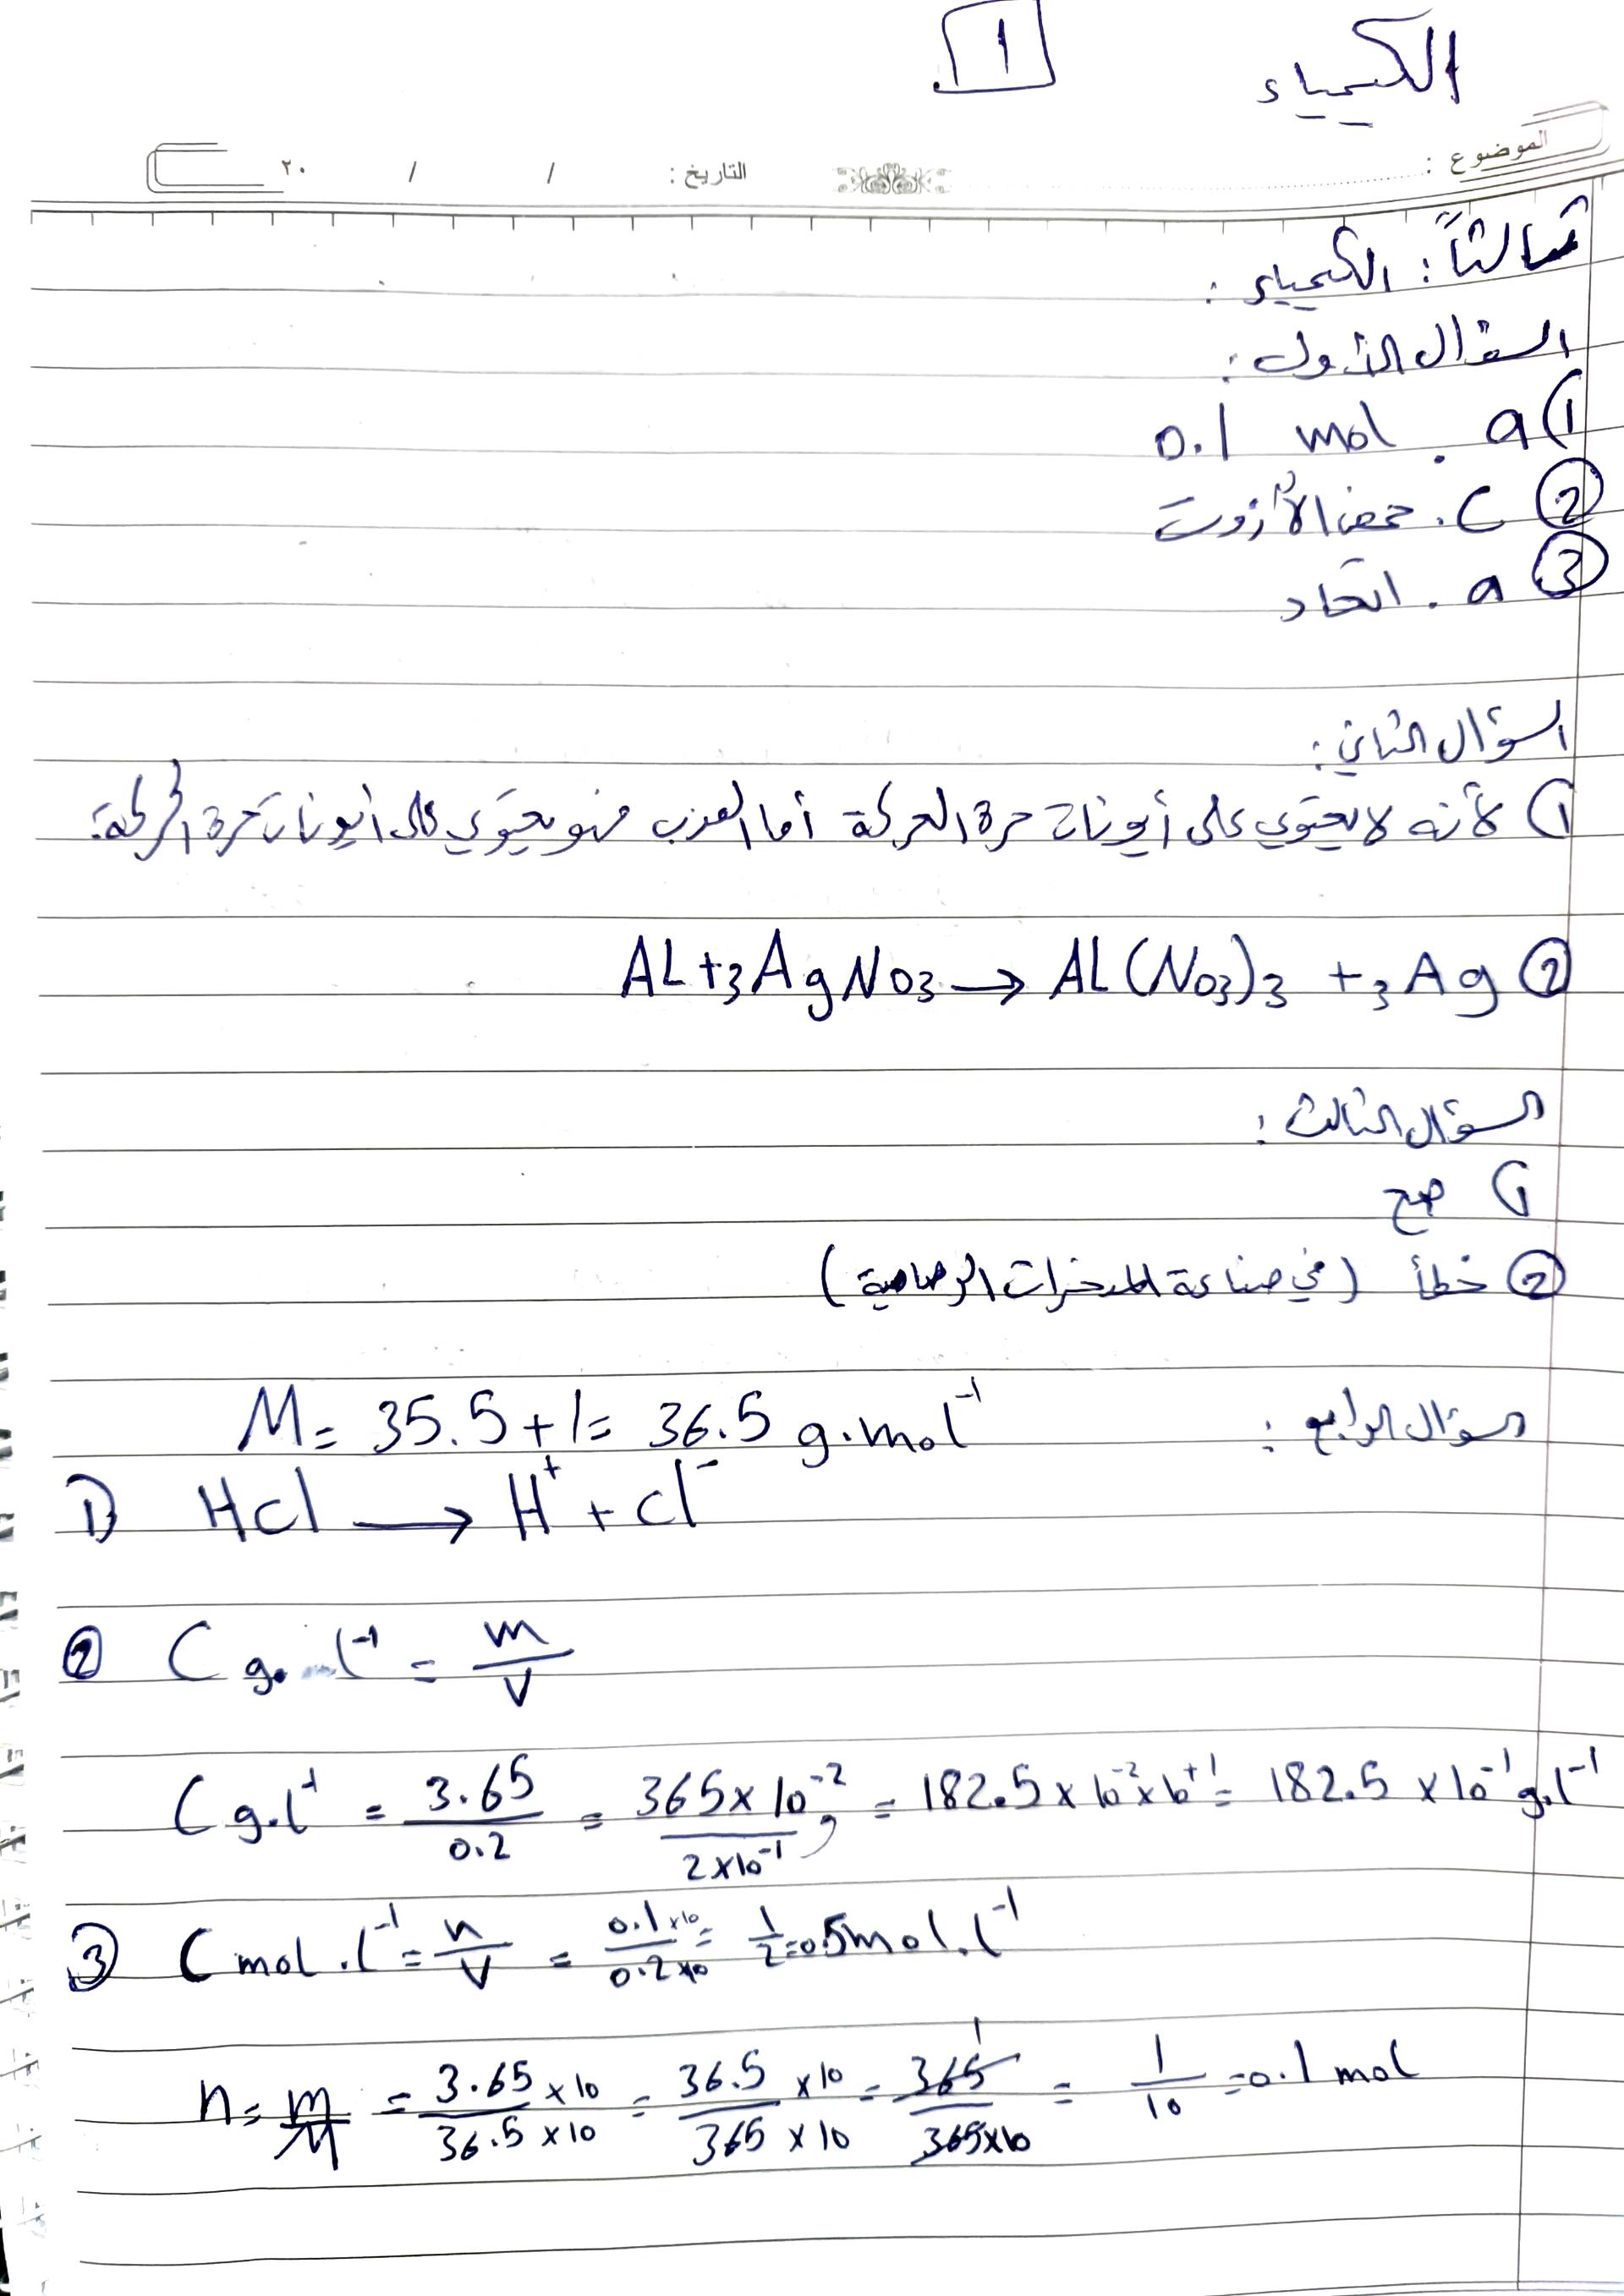 الكيمياء
1
الموضوع :
التاريخ : / / ٢٠
ثالثاً : الكيمياء :
السؤال الأول :
1) a . 0.1 mol
2 c . حمض الآزوت
3 a . اتحاد
السؤال الثاني :
1) لأنه لا يحتوي على أيونات حرة الحركة أما العذب فهو يحتوي على أيونات حرة الحركة.
2 AL + 3AgNO3 → AL(NO3)3 + 3Ag
السؤال الثالث :
1) صح
2 خطأ (في صناعة المدخرات الرصاصية)
السؤال الرابع :
M = 35.5 + 1 = 36.5 g.mol⁻¹
1) HCl → H⁺ + Cl⁻
2 C g.l⁻¹ = m/V
C g.l⁻¹ = 3.65/0.2 = 365×10⁻²/2×10⁻¹ = 182.5×10⁻²×10⁺¹ = 182.5×10⁻¹ g.l⁻¹
3 C mol.l⁻¹ = n/V = 0.1×10/0.2×10 = 1/2 = 0.5 mol.l⁻¹
n = m/M = 3.65×10/36.5×10 = 36.5×10/365×10 = 365/365×10 = 1/10 = 0.1 mol